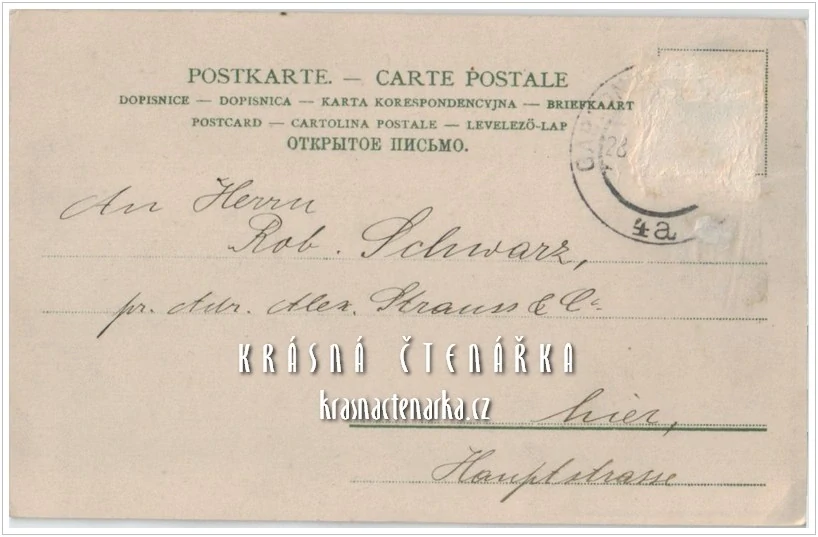 POSTKARTE. — CARTE POSTALE
DOPISNICE — DOPISNICA — KARTA KORESPONDENCYJNA — BRIEFKAART
POSTCARD — CARTOLINA POSTALE — LEVELEZŐ-LAP
ОТКРЫТОЕ ПИСЬМО.
28
4a
An Herrn
Rob. Schwarz,
pr. Adr. Alex. Strauss & Co.
KRÁSNÁ ČTENÁŘKA
krasnactenarka.cz
hier,
Hauptstrasse